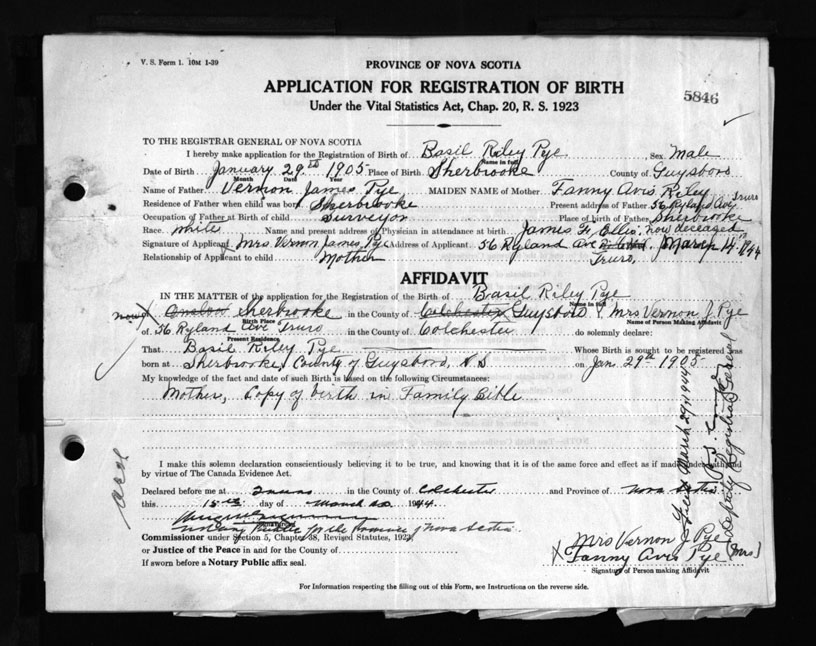 V. S. Form 1. 10M 1-39
PROVINCE OF NOVA SCOTIA
APPLICATION FOR REGISTRATION OF BIRTH
5846
Under the Vital Statistics Act, Chap. 20, R. S. 1923
TO THE REGISTRAR GENERAL OF NOVA SCOTIA
I hereby make application for the Registration of Birth of Basil Riley Pye Sex Male
Name in full
Date of Birth January 29th 1905 Place of Birth Sherbrooke County of Guysboro
Month Date Year
Name of Father Vernon James Pye MAIDEN NAME of Mother Fanny Avis Riley
Residence of Father when child was born Sherbrooke Present address of Father 56 Ryland Ave Truro
Occupation of Father at Birth of child Surveyor Place of birth of Father Sherbrooke
Race white Name and present address of Physician in attendance at birth James H. Ellis. now deceased
Signature of Applicant Mrs Vernon James Pye Address of Applicant 56 Ryland Ave March 14 1944
Relationship of Applicant to child Mother Truro.
AFFIDAVIT
IN THE MATTER of the application for the Registration of the Birth of Basil Riley Pye
Name in full
now of Onslow Sherbrooke in the County of Colchester Guysboro & Mrs Vernon J Pye
Birth Place Name of Person Making Affidavit
of 56 Ryland Ave Truro in the County of Colchester do solemnly declare:
Present Residence
That Basil Riley Pye Whose Birth is sought to be registered was
born at Sherbrooke, County of Guysboro, N.S on Jan. 29th 1905
My knowledge of the fact and date of such Birth is based on the following Circumstances:
Mother, Copy of birth in Family Bible
I make this solemn declaration conscientiously believing it to be true, and knowing that it is of the same force and effect as if made under oath and
by virtue of The Canada Evidence Act.
Declared before me at Truro in the County of Colchester and Province of Nova Scotia
this 15th day of March A.D. 1944
Notary Public for the Province of Nova Scotia
Commissioner under Section 5, Chapter 38, Revised Statutes, 1923
or Justice of the Peace in and for the County of
If sworn before a Notary Public affix seal.
Mrs Vernon J Pye
X Fanny Avis Pye (Mrs)
Signature of Person making Affidavit
For Information respecting the filling out of this Form, see Instructions on the reverse side.
Filed March 29, 1944
Deputy Registrar General